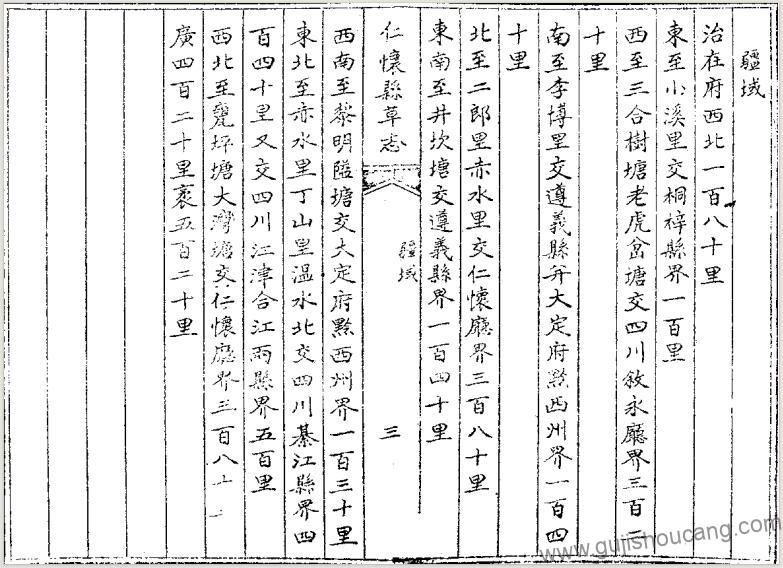 疆域
治在府西北一百八十里
東至小溪里交桐梓縣界一百里
西至三合樹塘老虎岔塘交四川敘永廳界三百二
十里
南至李博里交遵義縣并大定府黔西州界一百四
十里
北至二郎里赤水里交仁懷廳界三百八十里
東南至井坎塘交遵義縣界一百四十里
仁懷縣草志
疆域
三
西南至黎明隘塘交大定府黔西州界一百三十里
東北至赤水里丁山里溫水北交四川綦江縣界四
百四十里又交四川江津合江兩縣界五百里
西北至甕坪塘大灣塘交仁懷廳界三百八十
廣四百二十里袤五百二十里
www.gujishoucang.com